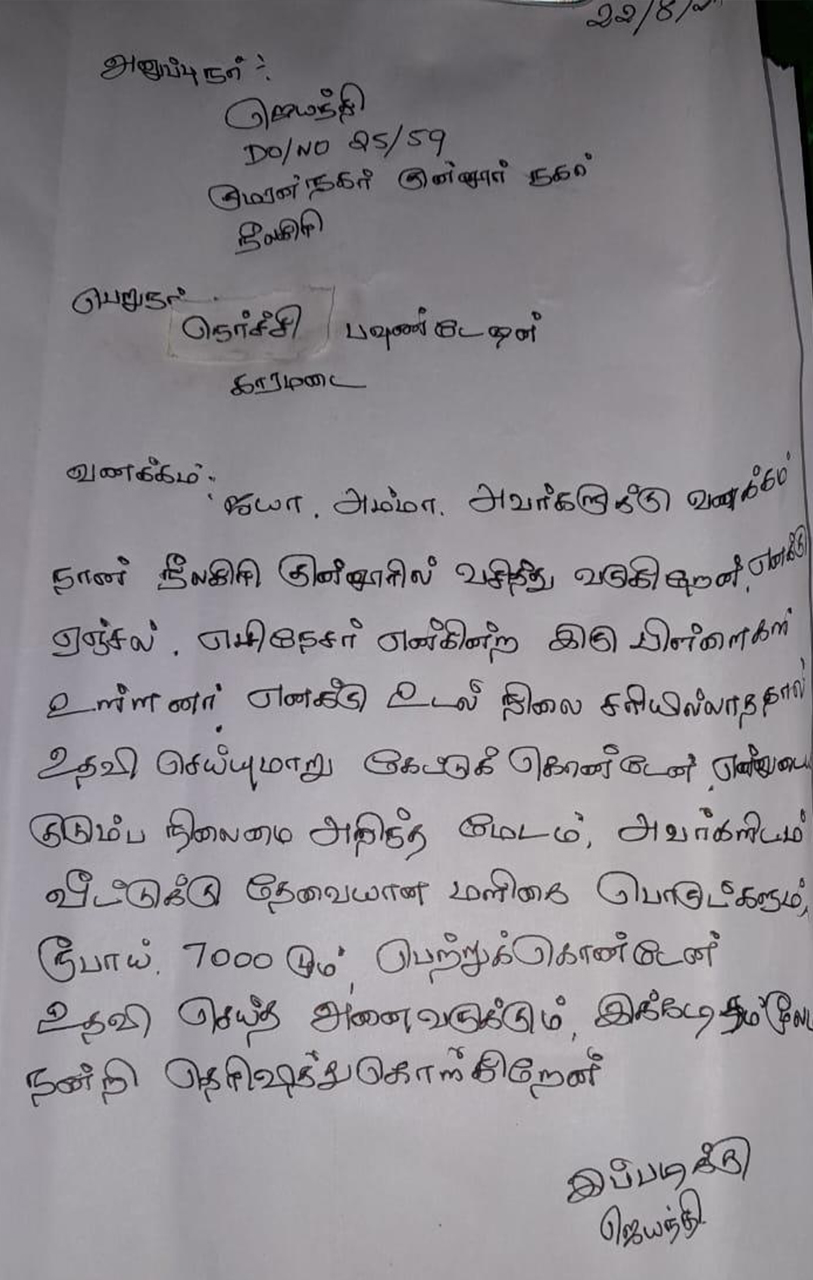 22/8/2
அனுப்புநர் :
ஜெயந்தி
DO/NO 25/59
குமரன் நகர் குன்னூர் நகர்
நீலகிரி
பெறுநர்
நேர்ச்சி பவுண்டேஷன்
காரமடை
வணக்கம் :
ஐயா. அம்மா. அவர்களுக்கு வணக்கம்
நான் நீலகிரி குன்னூரில் வசித்து வருகிறேன். எனக்கு
ஏஞ்சல். எபிநேசர் என்கின்ற இரு பிள்ளைகள்
உள்ளனர். எனக்கு உடல் நிலை சரியில்லாததால்
உதவி செய்யுமாறு கேட்டுக் கொண்டேன். என்னுடைய
குடும்ப நிலைமை அறிந்த மேடம், அவர்களிடம்
வீட்டுக்கு தேவையான மளிகை பொருட்களும்,
ரூபாய். 7000 மும் பெற்றுக்கொண்டேன்
உதவி செய்த அனைவருக்கும், இக்கடிதம் மூலம்
நன்றி தெரிவித்துகொள்கிறேன்
இப்படிக்கு
ஜெயந்தி